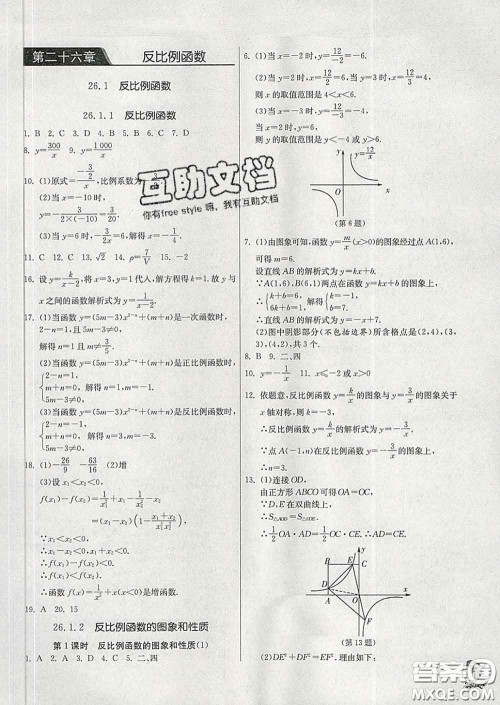 第二十六章 反比例函数
26.1 反比例函数
26.1.1 反比例函数
1. B 2. C 3. D 4. B 5. C 6. B 7. D
8. y=300/x 9. y=1 000/x
10. (1)原式=-(3/2)/x,比例系数为
(2)当 x=-10 时,
y=-3/(2×(-10))=3/20.
(3)当 y=6 时,解得 x=-1/4.
11. A 12. C 13. √2 14. ρ=7/V 15. -2
16. 设 y=k/(x-2),将 x=3,y=1 代入,解方程得 k=1.故 y 与
x 之间的函数解析式为 y=1/(x-2).
17. (1)当函数 y=(5m-3)x^(2-n)+(m+n)是一次函数时,
2-n=1,
解得 n=1 而 m≠3/5.
(2)当函数 y=(5m-3)x^(2-n)+(m+n)是正比例函数时,
{2-n=1, m+n=0, 解得 n=1,m=-1.
(3)当函数 y=(5m-3)x^(2-n)+(m+n)是反比例函数时,
{2-n=-1, m+n=0, 解得 n=3,m=-3.
18. (1)-26/9 -63/16 (2)增
(3)设 x₁<x₂<0,
∵x₁<x₂<0,
∴x₁-x₂<0.
∴f(x₁)-f(x₂)<0.
∴f(x₁)<f(x₂).
∴函数 f(x)=1/x²+x(x<0)是增函数.
19. A 20. 15
26.1.2 反比例函数的图象和性质
第 1 课时 反比例函数的图象和性质(1)
1. A 2. A 3. C 4. D 5. 二、四
6. (1)当 x=-2 时,y=12/x=12/-2=-6.
(2)当 x=2 时,y=6,当 x=3 时,y=4,
则 y 的取值范围是 4<y<6.
(3)当 y=-3 时,x=-4,
当 y=2 时,x=6,
则 x 的取值范围是 x<-4 或 x>6.
y y=12/x
O x
(第 6 题)
7. (1)由图象可知,函数 y=m/x(x>0)的图象经过点 A(1,6),
可得 m=6.
设直线 AB 的解析式为 y=kx+b.
∵A(1,6),B(6,1)两点在函数 y=kx+b 的图象上,
∴{k+b=6, 6k+b=1, 解得{k=-1, b=7.
∴直线 AB 的解析式为 y=-x+7.
(2)图中阴影部分(不包括边界)所含格点是(2,4),(3,
3),(4,2),共 3 个.
8. B 9. 二、四
10. y=-3/x 11. x≤-2 或 x>0
12. 依题意,反比例函数 y=k/x 的图象与 y=3/x 的图象关于
x 轴对称,
∴反比例函数 y=k/x 的解析式为 y=-3/x.
13. (1)连接 OD,
由正方形 ABCO 可得 OA=OC,
∵D、E 在双曲线上,
∴1/2 OA·AD=1/2 OC·CE,AD=CE.
y
B E C
D
A O x
F
(第 13 题)
(2)DE²+DF²=EF².理由如下:
互助文档
你有free style 嘛,我有互助文档!
答案圈
MXQE.COM